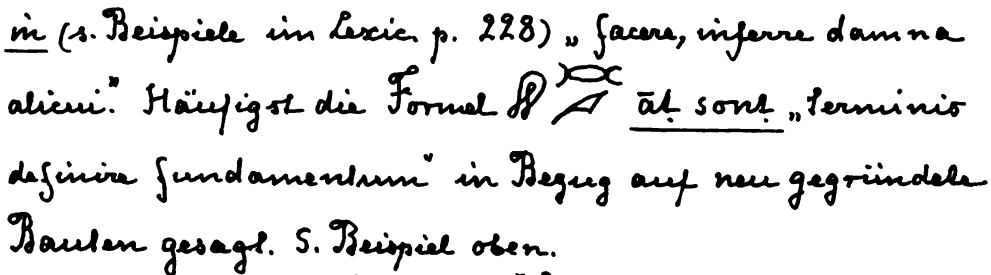 in (s. Beispiele im Lexic. p. 228) „facere, inferre damna
alicui.“ Häufigst die Formel āṭ sonṭ „terminis
definire fundamentum“ in Bezug auf neu gegründete
Bauten gesagt. S. Beispiel oben.